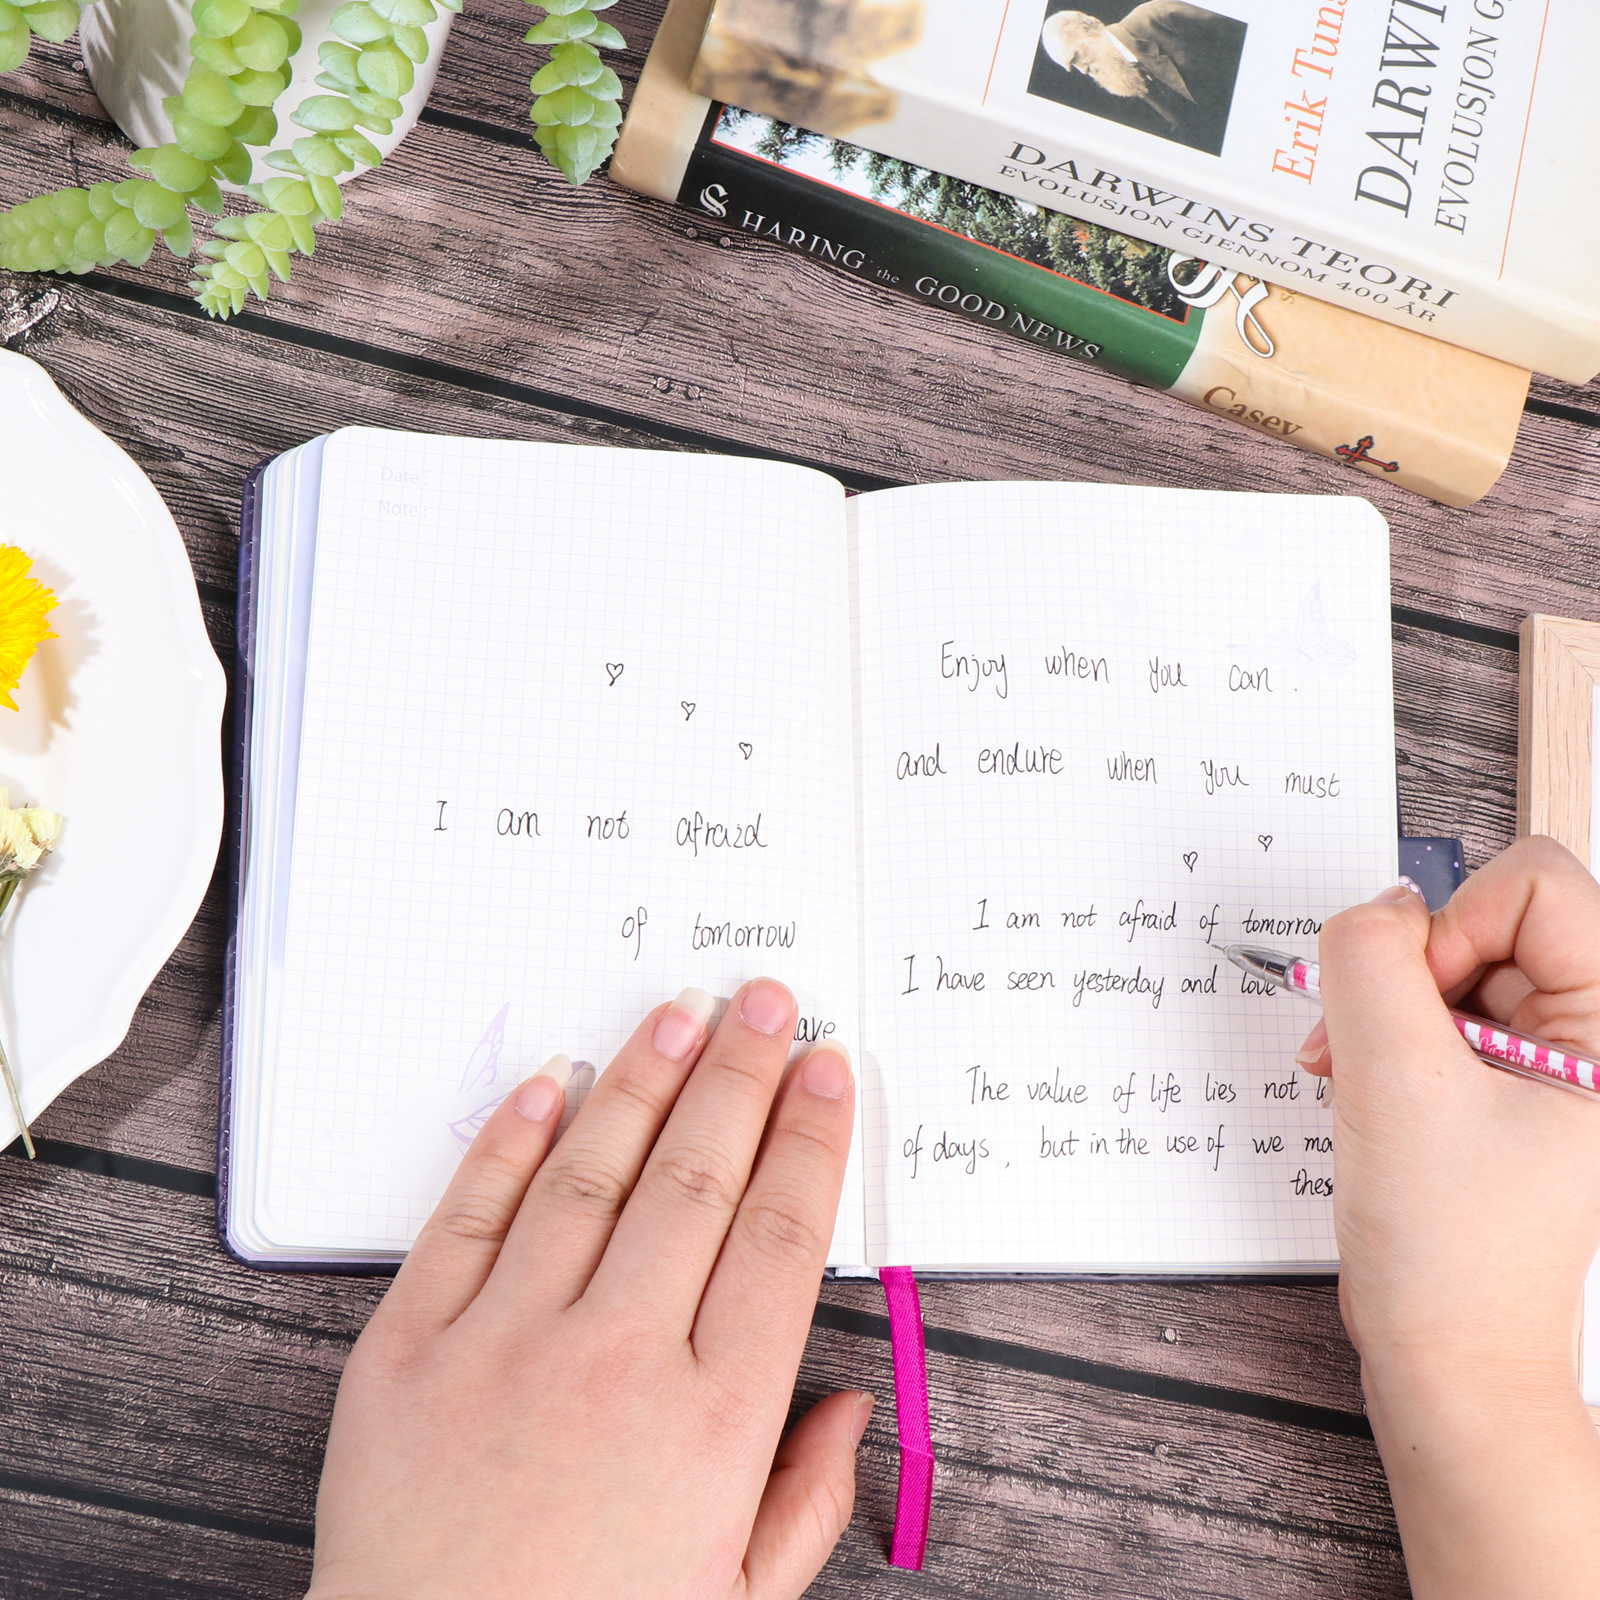 Erik Tuns
DARWI
EVOLUSJON GJ
DARWINS TEORI
EVOLUSJON GJENNOM 400 ÅR
HARING the GOOD NEWS
Casey
Date :
Note :
I am not afraid
of tomorrow
ave
Enjoy when you can .
and endure when you must
I am not afraid of tomorrow
I have seen yesterday and love
The value of life lies not
of days , but in the use of we ma
thes